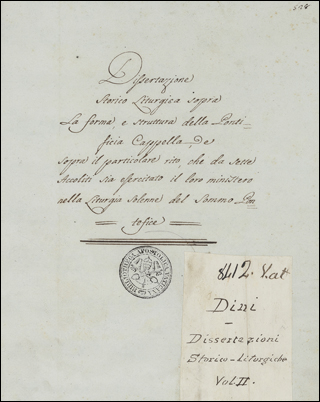 528
Dissertazione
Storico Liturgica sopra
La forma, e struttura della Ponti-
ficia Cappella, e
sopra il particolare rito, che da sette
Accoliti sia esercitato il loro ministero
nella Liturgia Solenne del Sommo Pon
tefice
BIBLIOTHECA APOSTOLICA VATICANA
8412. Lat
Dini
-
Dissertazioni
Storico-Liturgiche
Vol II.